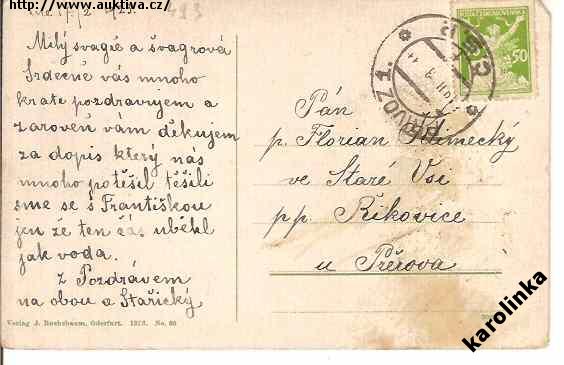 http://www.auktiva.cz/
Milý svagře a švagrová
Srdečně vás mnoho
krate pozdravujem a
zaroveň vám děkujem
za dopis který nás
mnoho potěšil těšili
sme se s Františkou
jen že ten čas uběhl
jak voda.
z Pozdrávem
na obou a Stařický
Verlag J. Buchsbaum, Oderfurt. 1913. No. 60
PŘÍVOZ 1.
50
Pán
p. Florian Německý
ve Staré Vsi
p p. Říkovice
u Přerova
karolinka